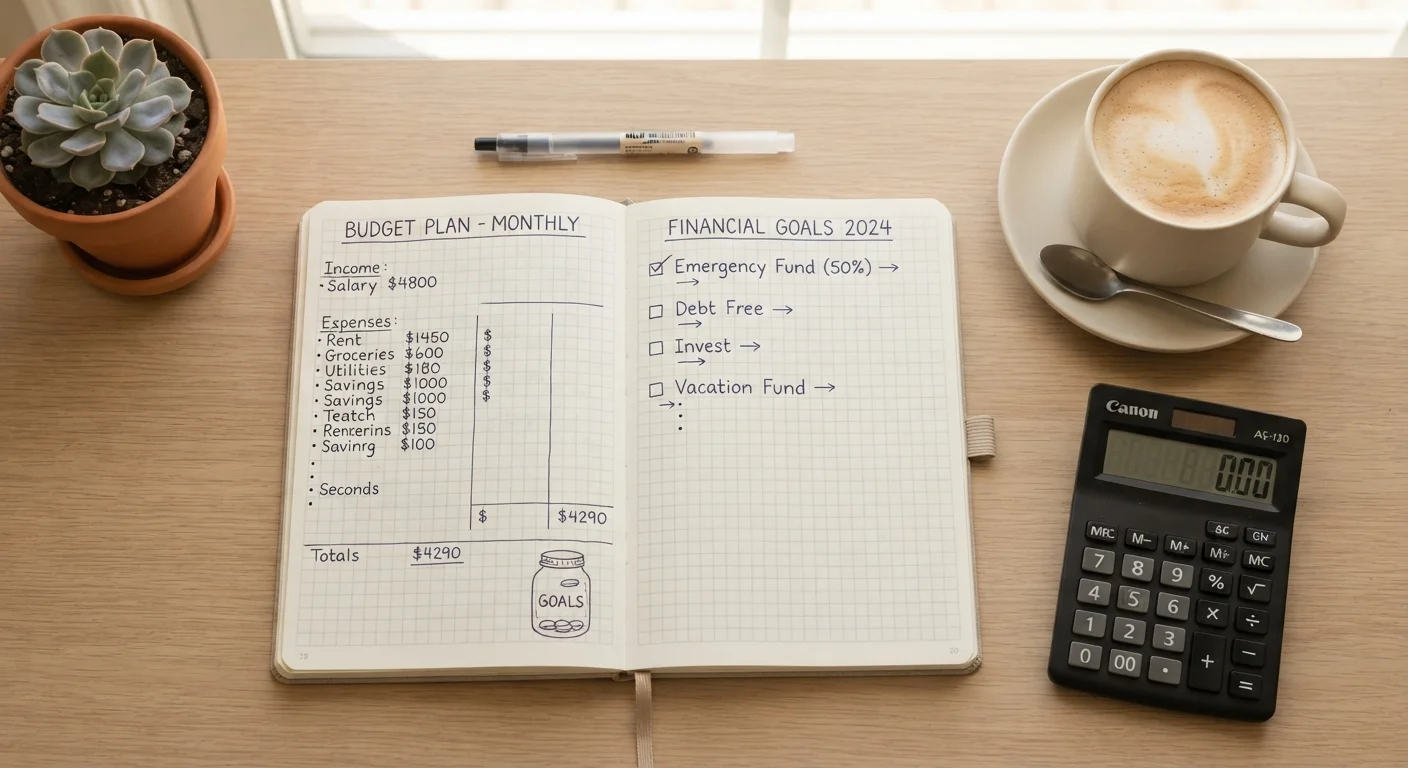 BUDGET PLAN - MONTHLY
Income:
· Salary $4800
Expenses:
· Rent $1450
· Groceries $600
· Utilities $180
· Savings $1000
· Savings $1000
· Teatch $150
· Renterins $150
· Savinrg $100
·
· Seconds
·
$
$
$
$
$
$ $4290
Totals $4290
GOALS
FINANCIAL GOALS 2024
☑ Emergency Fund (50%) →
→
☐ Debt Free →
→
☐ Invest →
→
☐ Vacation Fund →
→·
·
·
Canon
0.00
MRC M- M+
GN
MC
7 8 9 % √
4 5 6 × ÷
1 2 3 + −
0 00 . =